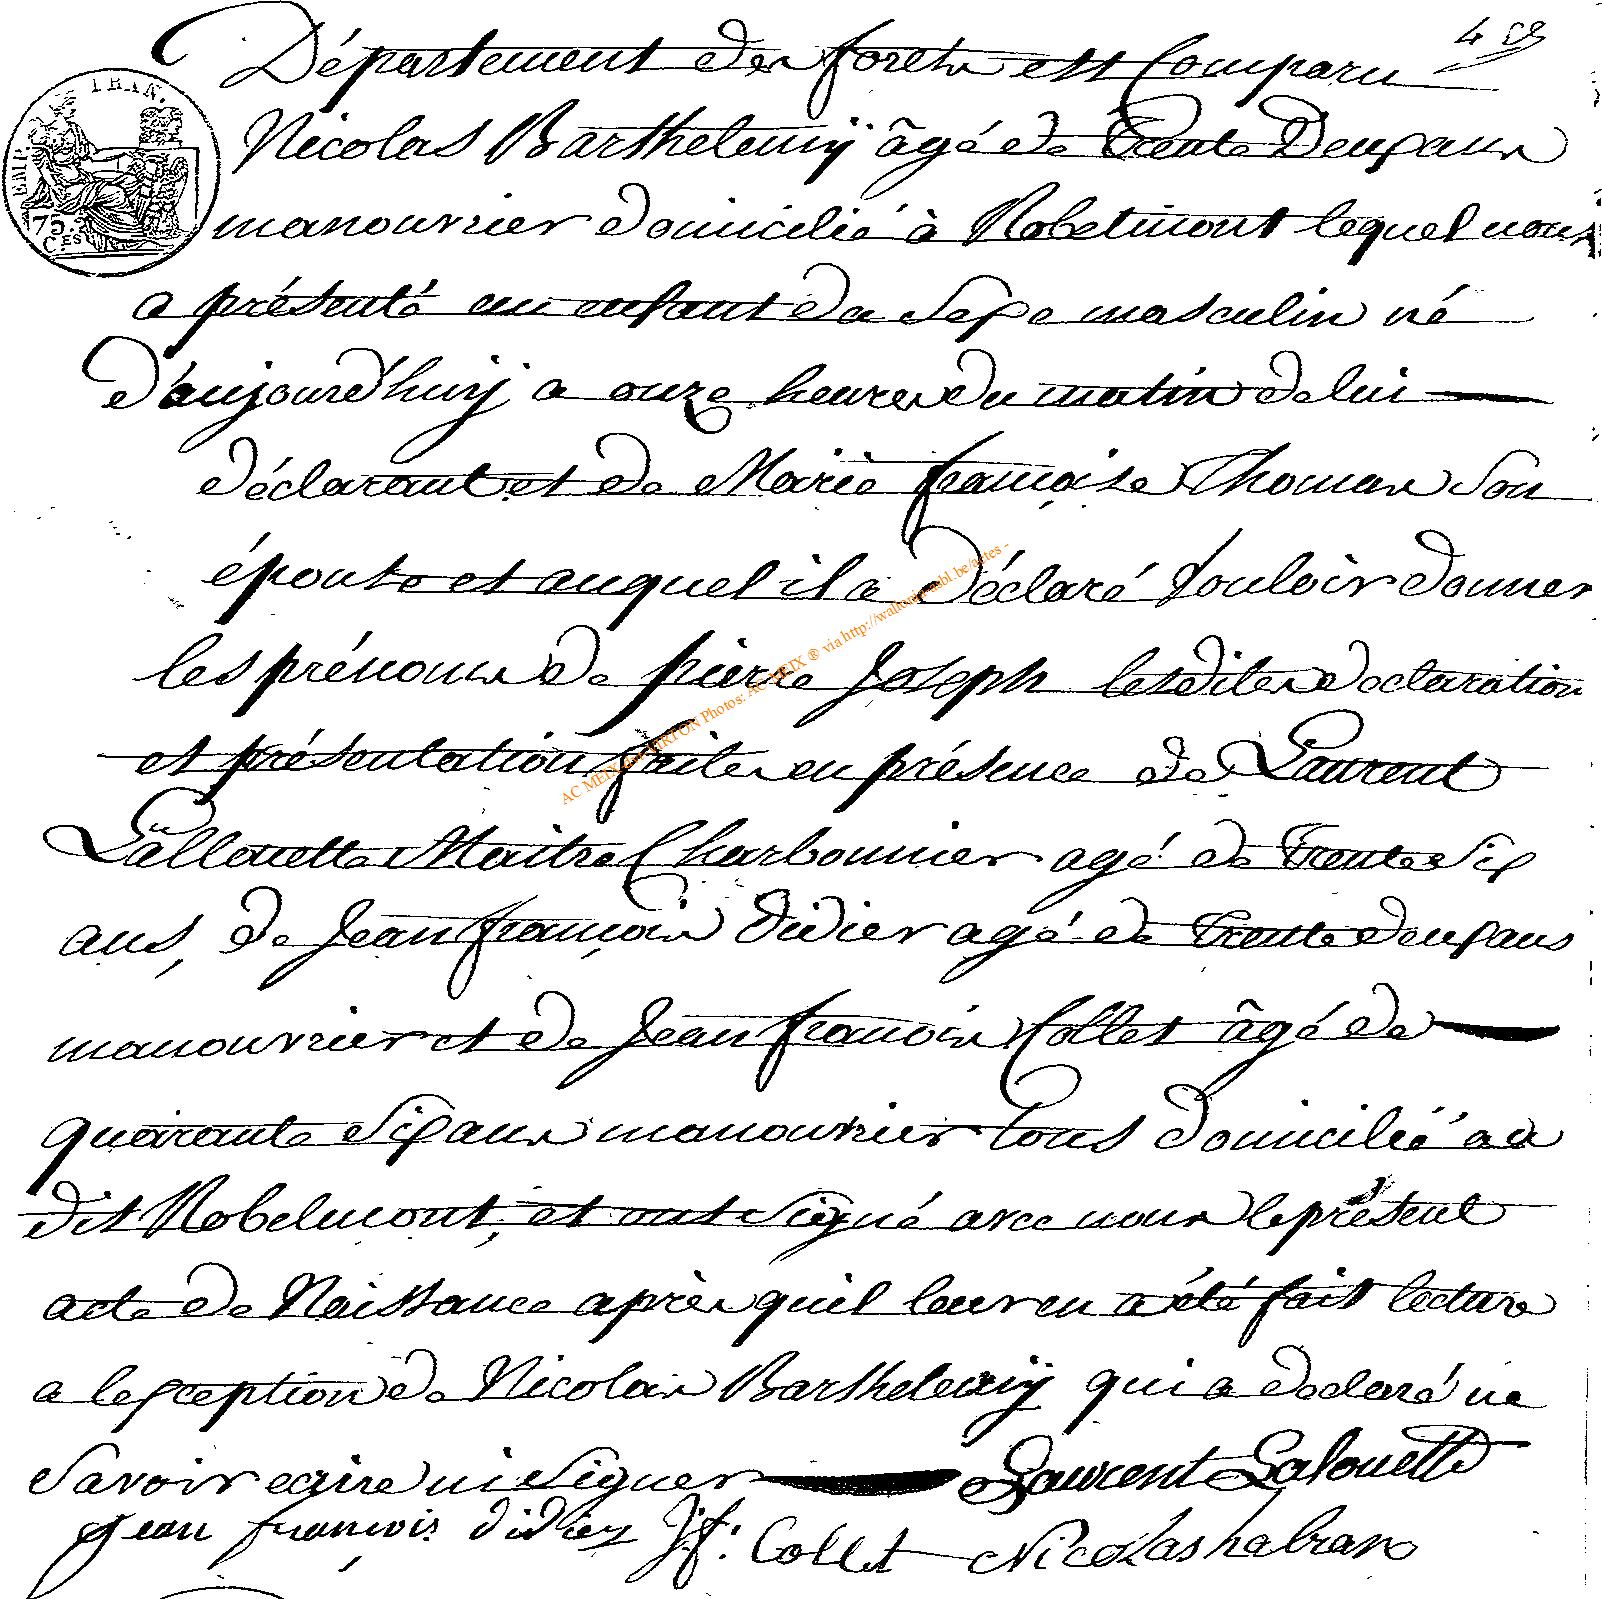 4 
Département des forets est Comparu
EMP. FRAN.
75. CES
Nicolas Barthelemÿ âgé de trente Deux ans
manouvrier domicilié à Robelmont lequel nous
a présenté un enfant du Sexe masculin né
d'aujourd'huij a onze heures du matin de lui
déclarant et de Marie françoise Thomas Son
épouse et auquel il a déclaré Vouloir donner
les prénoms de pierre Joseph lesdites declaration
et présentation faites en présence de Laurent
Lallouette Maitre Charbonnier agé de trente Six
ans, de Jean françois Didier agé de trente deux ans
manouvrier et de Jean francois Collet âgé de
quarante Six ans manouvrier tous domicilié au
dit Robelmont, et ont Signé avec nous le présent
acte de Naissance après quil leur en a été fait lecture
a lexception de Nicolas Barthelemÿ qui a declaré ne
Savoir ecrire ni Signer Laurent Lalouette
Jean françois didier J f: Collet Nicolas habran
AC MEIX-dvt-VIRTON Photos: AC MEIX ® via http://wallonica.abl.be/actes -